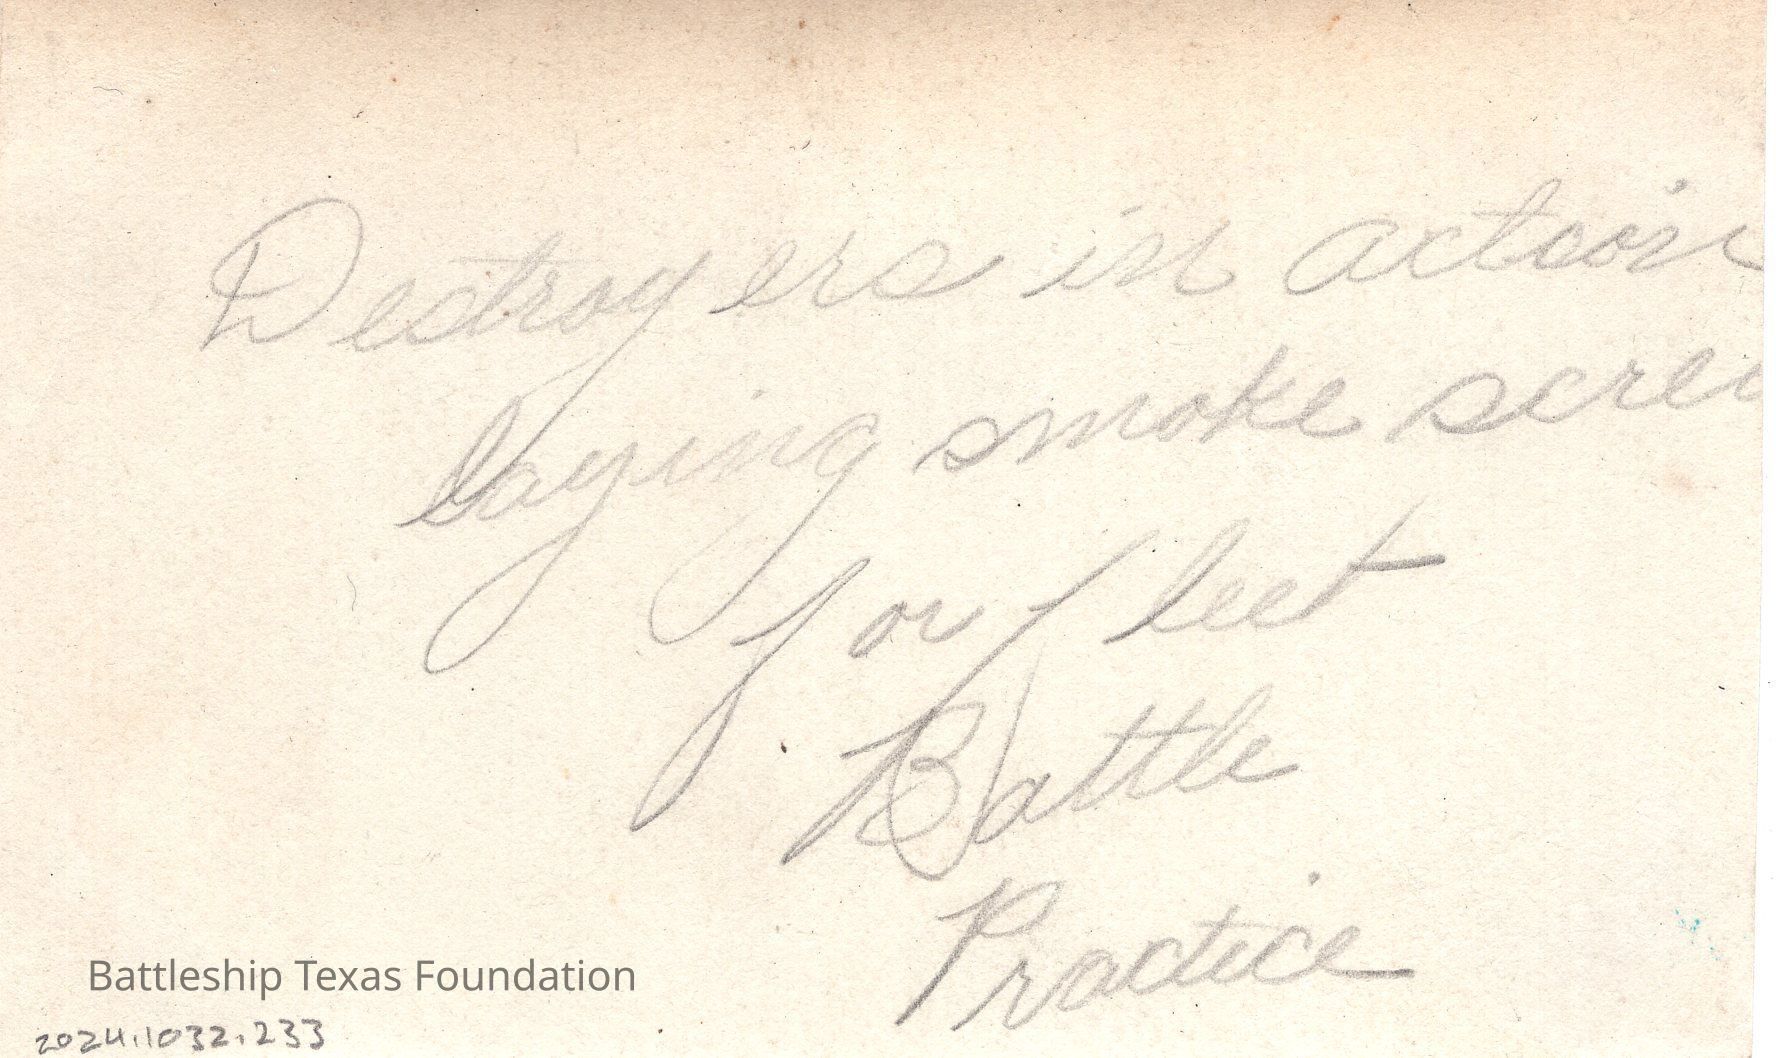 Destroyers in action
laying smoke scree
for fleet
Battle
Practice
Battleship Texas Foundation
2024.1032.233